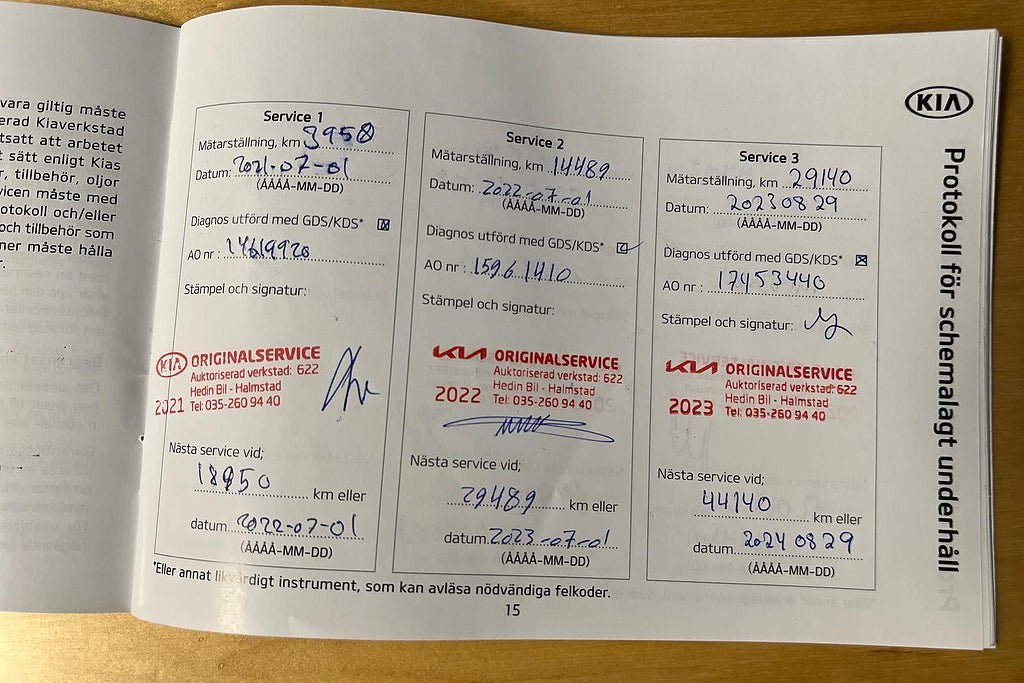 vara giltig måste
erad Kiaverkstad
tsatt att arbetet
t sätt enligt Kias
r, tillbehör, oljor
vicen måste med
otokoll och/eller
och tillbehör som
ner måste hålla
r.
KIA
Protokoll för schemalagt underhåll
Service 1
Mätarställning, km 3958
Datum: 2021-07-01
(ÅÅÅÅ-MM-DD)
Diagnos utförd med GDS/KDS*
AO nr : 14619928
Stämpel och signatur:
KIA ORIGINALSERVICE
Auktoriserad verkstad: 622
Hedin Bil - Halmstad
2021 Tel: 035-260 94 40
Nästa service vid;
18950 km eller
datum 2022-07-01
(ÅÅÅÅ-MM-DD)
Service 2
Mätarställning, km 14489
Datum: 2022-07-01
(ÅÅÅÅ-MM-DD)
Diagnos utförd med GDS/KDS*
AO nr : 15961410
Stämpel och signatur:
KIA ORIGINALSERVICE
Auktoriserad verkstad: 622
Hedin Bil - Halmstad
2022 Tel: 035-260 94 40
Nästa service vid;
29489 km eller
datum 2023-07-01
(ÅÅÅÅ-MM-DD)
Service 3
Mätarställning, km 29140
Datum: 20230829
(ÅÅÅÅ-MM-DD)
Diagnos utförd med GDS/KDS*
AO nr : 17453440
Stämpel och signatur:
KIA ORIGINALSERVICE
Auktoriserad verkstad: 622
Hedin Bil - Halmstad
2023 Tel: 035-260 94 40
Nästa service vid;
44140 km eller
datum 20240829
(ÅÅÅÅ-MM-DD)
*Eller annat likvärdigt instrument, som kan avläsa nödvändiga felkoder.
15